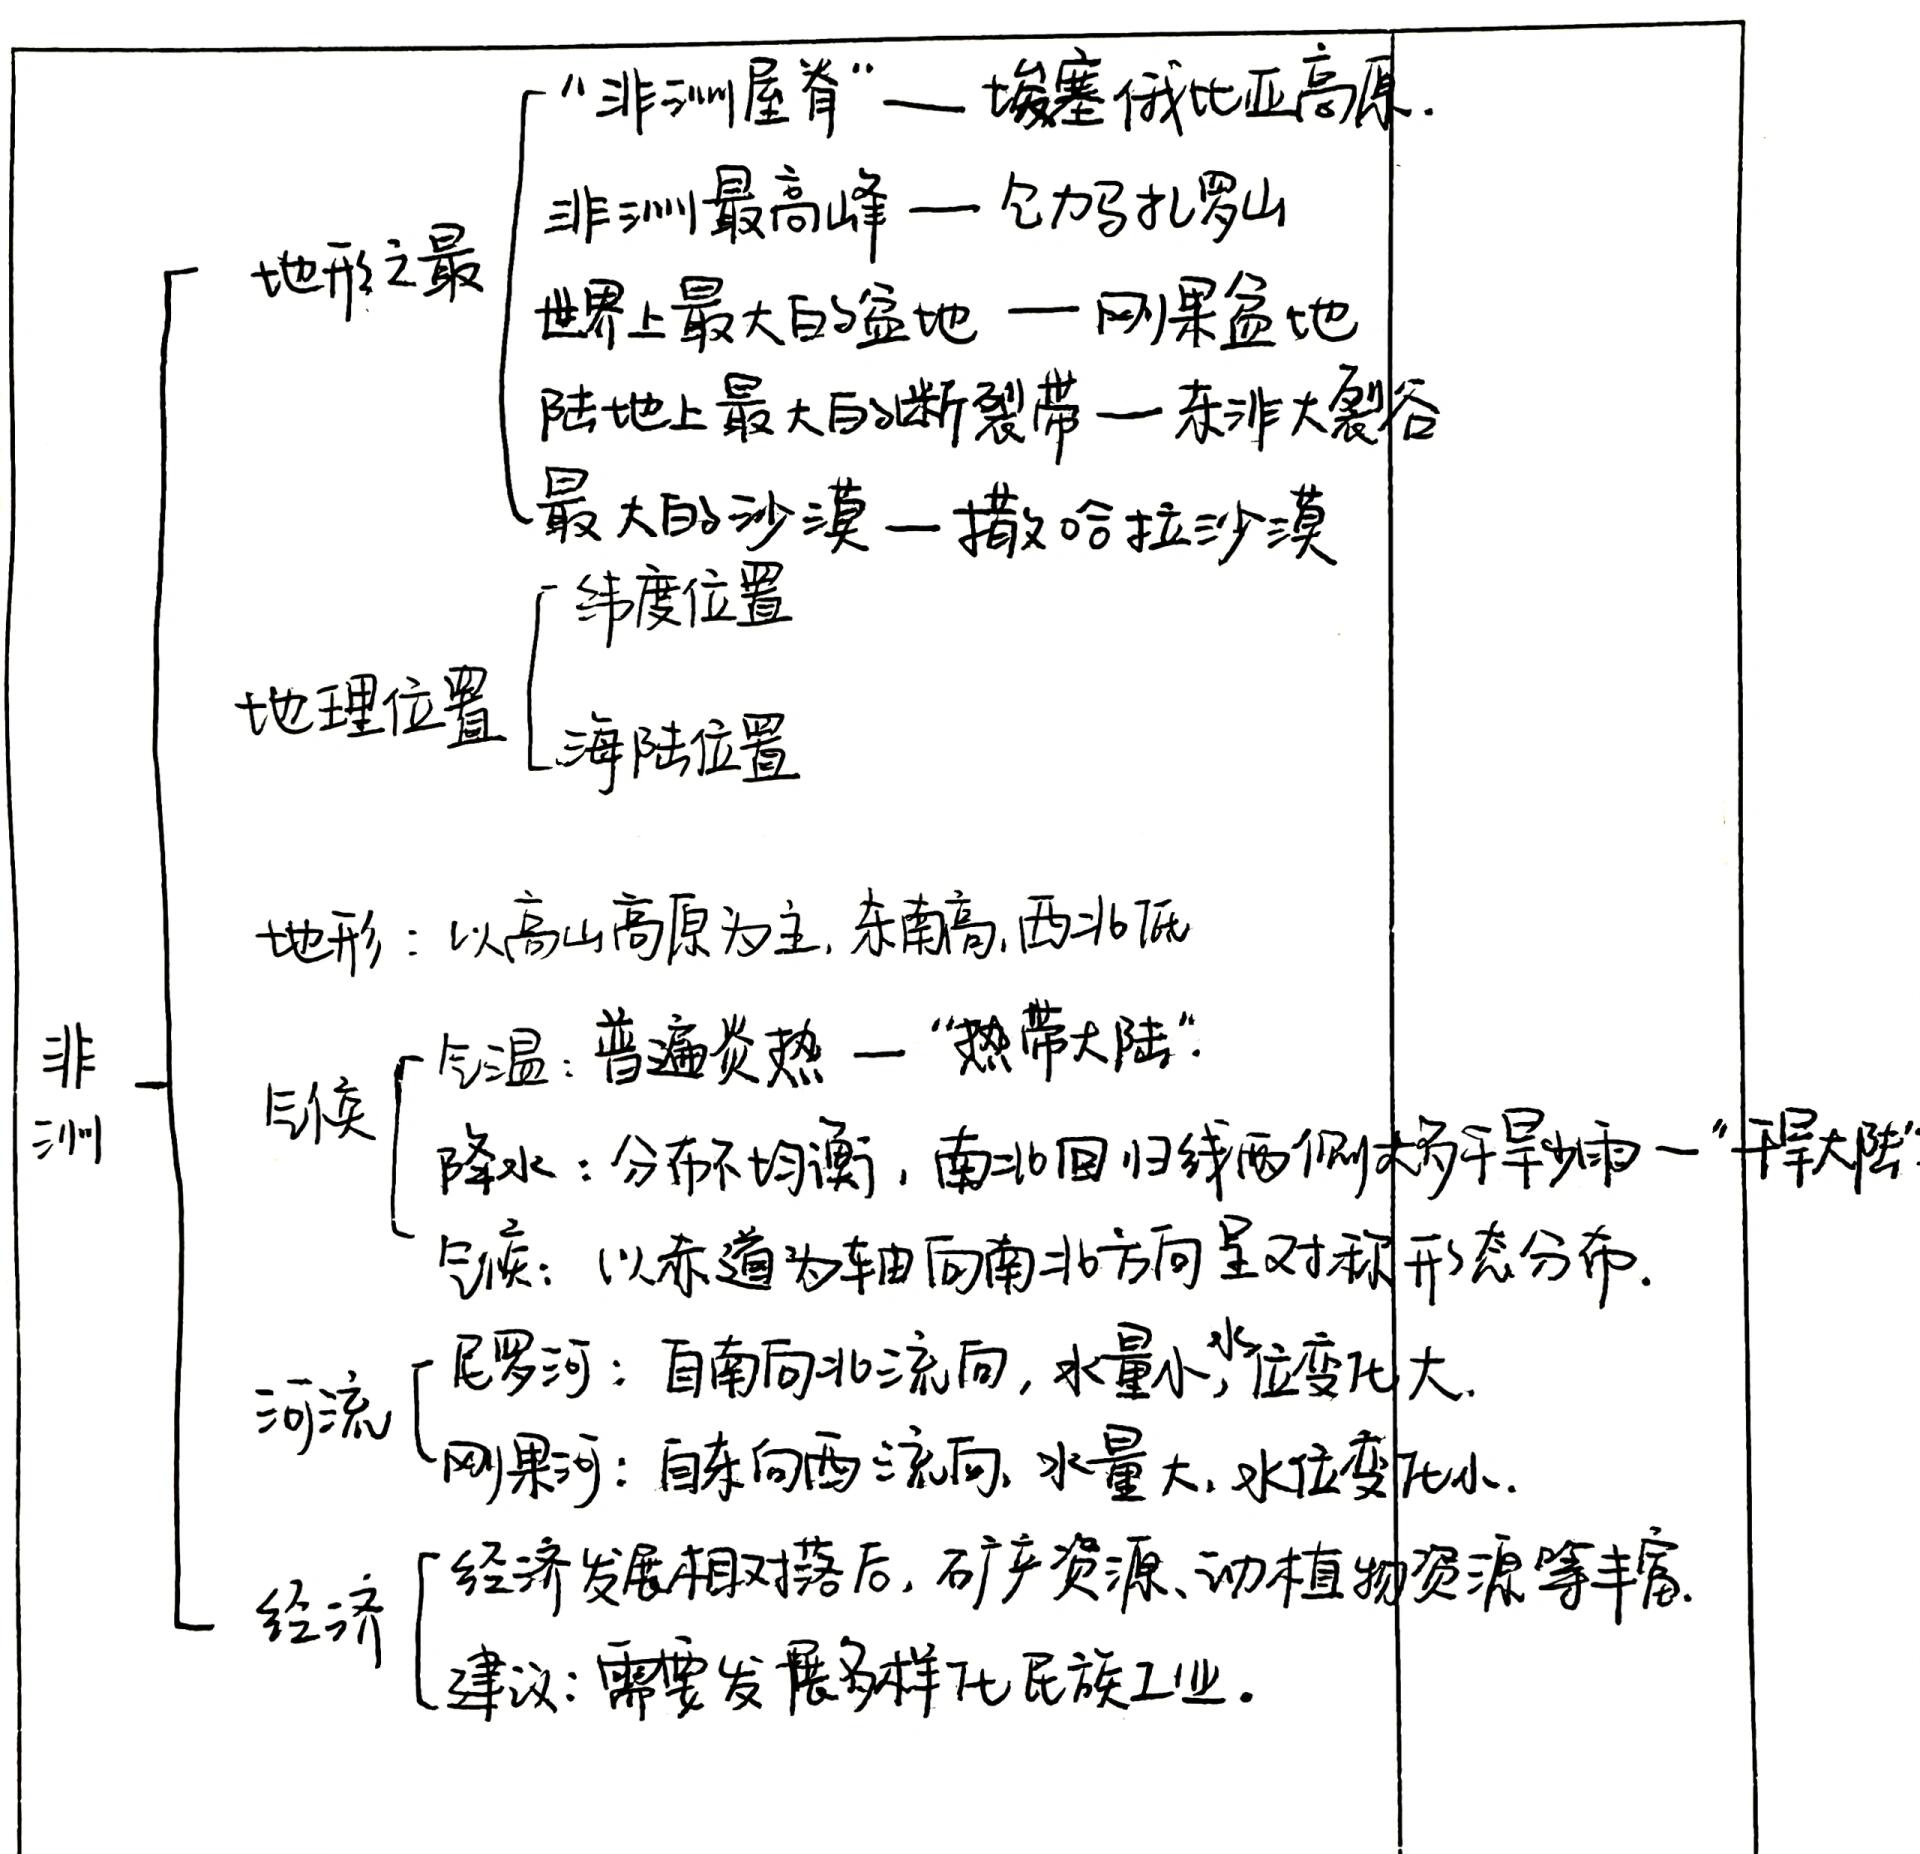 “非洲屋脊”—埃塞俄比亚高原.
非洲最高峰—乞力马扎罗山
地形之最
世界上最大的盆地—刚果盆地
陆地上最大的断裂带—东非大裂谷
最大的沙漠—撒哈拉沙漠
纬度位置
地理位置
海陆位置
地形：以高山高原为主，东南高，西北低
非洲
气候
气温：普遍炎热—“热带大陆”.
降水：分布不均衡，南北回归线两侧大为干旱少雨—“干旱大陆”.
气候：以赤道为轴向南北方向呈对称形态分布.
河流
尼罗河：自南向北流向，水量小，水位变化大.
刚果河：自东向西流向，水量大，水位变化小.
经济
经济发展相对落后，矿产资源、动植物资源等丰富.
建议：需要发展多样化民族工业.